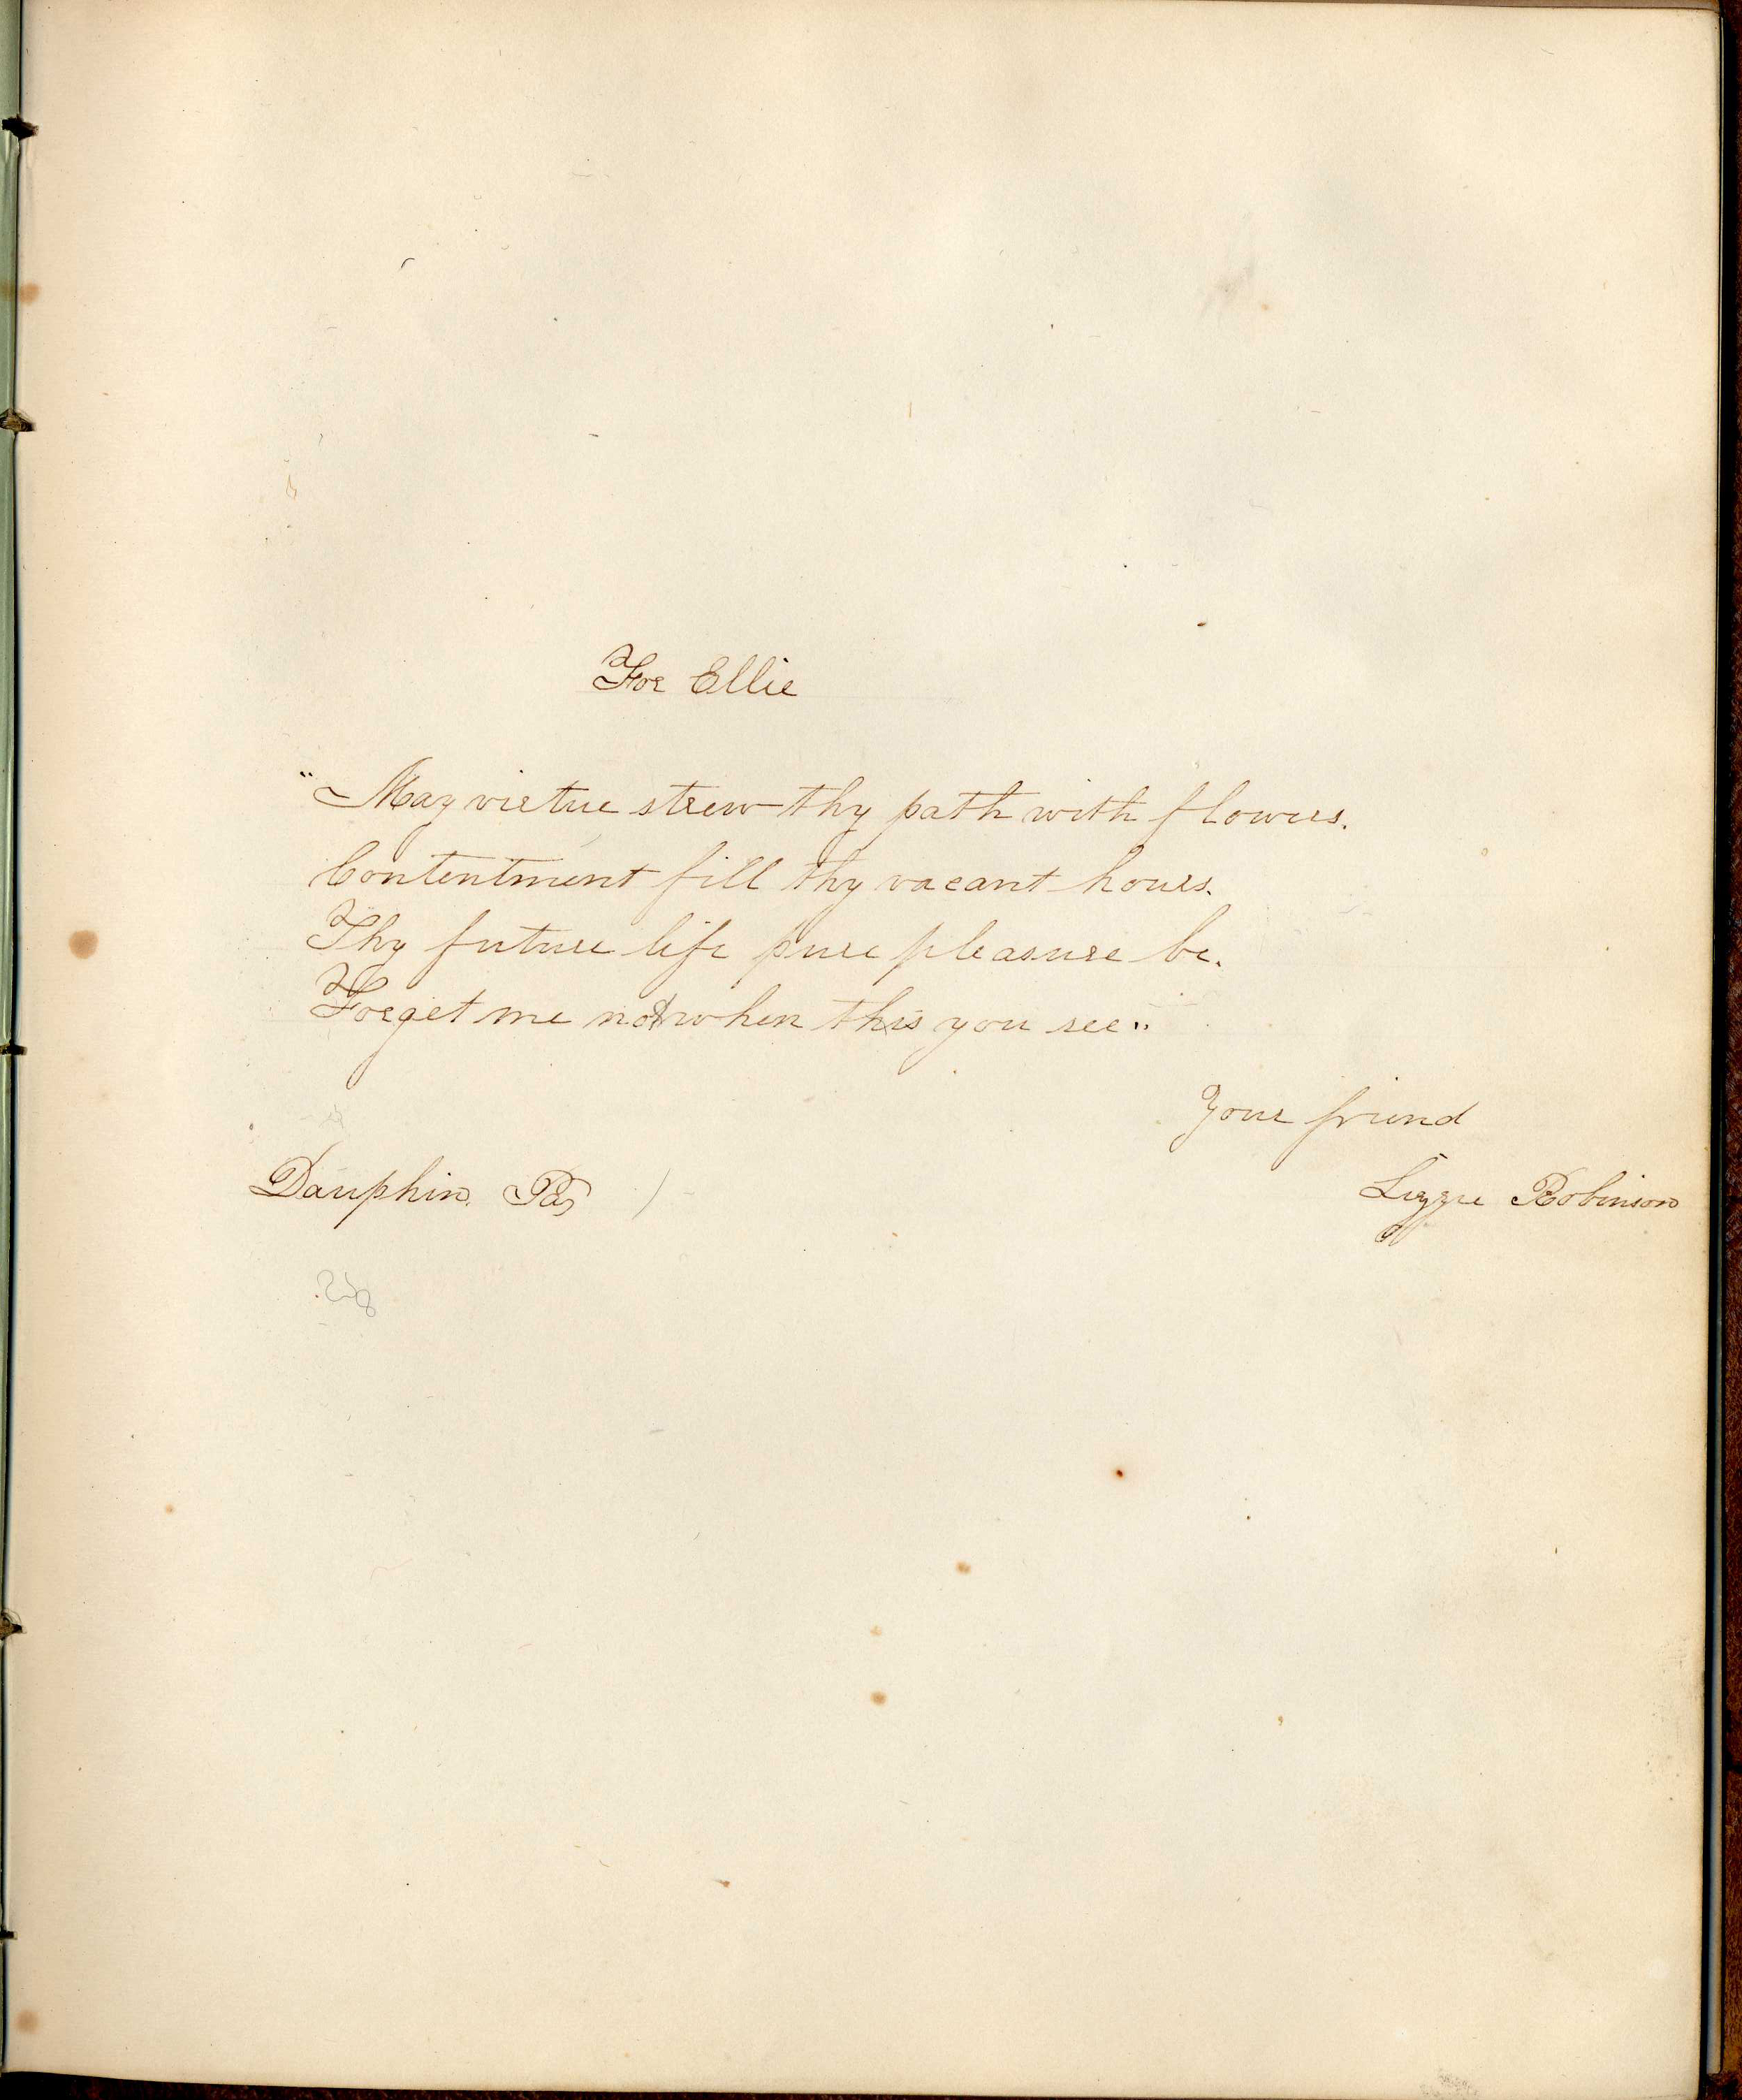 For Ellie
"May virtue strew thy path with flowers.
Contentment fill thy vacant hours.
Thy future life pure pleasure be.
Forget me not when this you see"
Your friend
Dauphin. Pa Lizzie Robinson